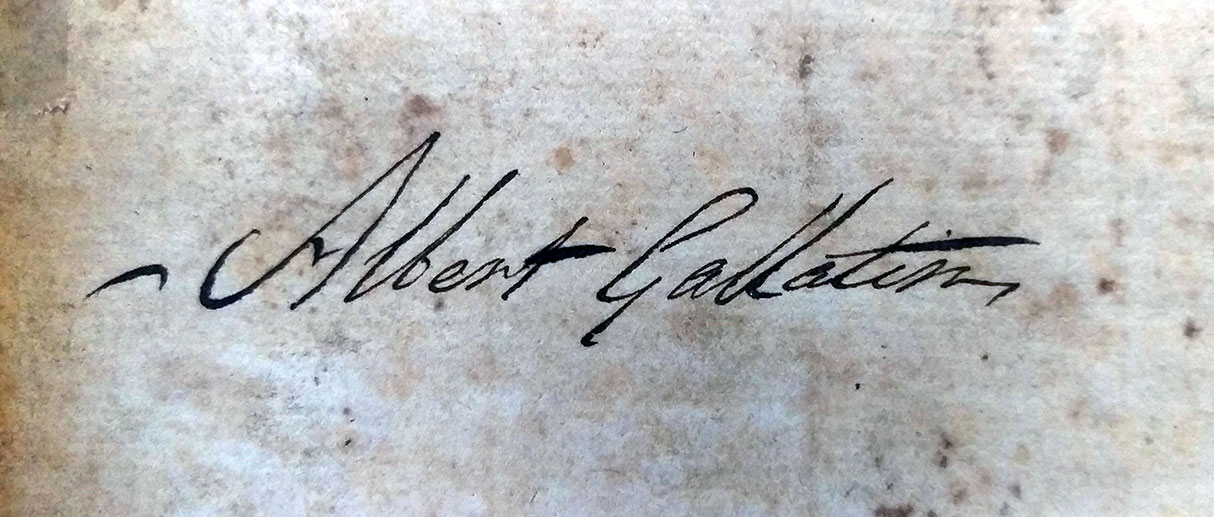 Albert Gallatin